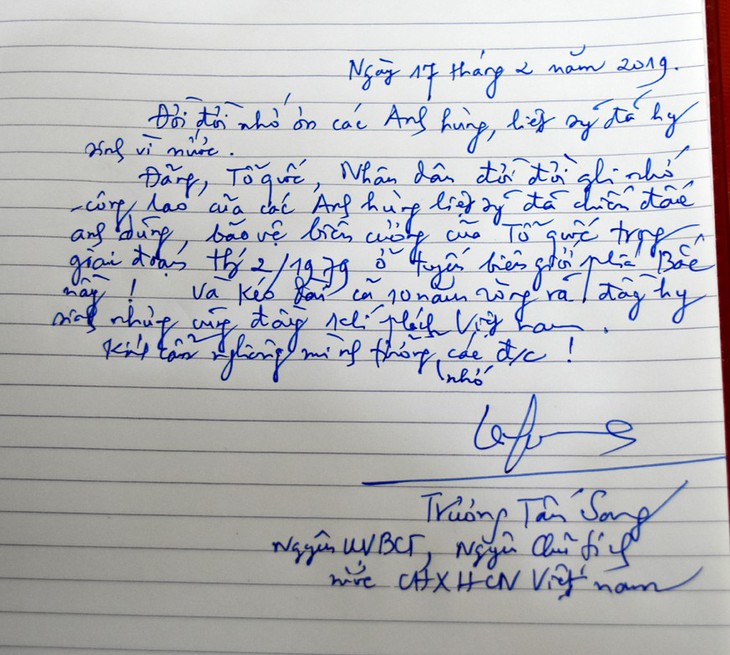 Ngày 17 tháng 2 năm 2019.
Đời đời nhớ ơn các Anh hùng, liệt sỹ đã hy
sinh vì nước.
Đảng, Tổ quốc, Nhân dân đời đời ghi nhớ
công lao của các Anh hùng liệt sỹ đã chiến đấu
anh dũng, bảo vệ biên cương của Tổ quốc trong
giai đoạn th¸ 2/1979 ở tuyến biên giới phía Bắc
này! Và kéo dài cả 10 năm ròng rã, đầy hy
sinh nhưng cũng đầy khí phách Việt nam.
Kính cẩn nghiêng mình tưởng các đ/c!
nhớ
Trương Tấn Sang
Nguyên UVBCT, Nguyên Chủ tịch
nước CHXHCN Việt nam